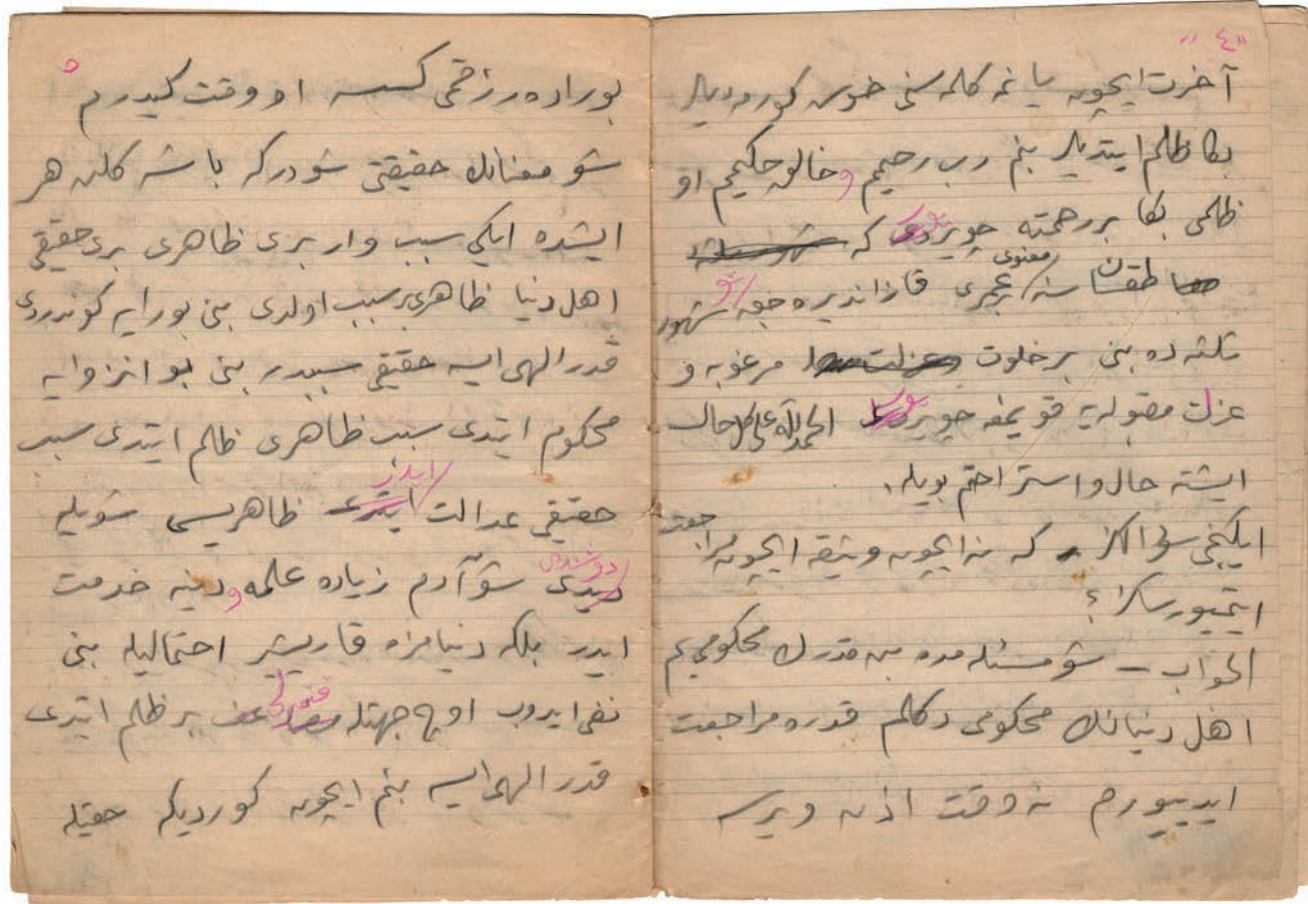 ٤
آخرت ایچون كلمه سنی خوش كورمدیلر
بكا ظلم ایتدیلر بنم رب رحیمم و خالق حكیمم او
ظلمی بكا بر رحمته چویردی كه
طقسان سنه معنوی بر عمری قازاندیره جق شو شهور
ثلثه ده بنی بر خلوت مرغوبه و
عزلت مقبوله یه قویمغه الحمد لله علی كل حال
ایشته حال و استراحتم بویله.
ایكنجی سؤالكز كه نه ایچون وثیقه ایچون مراجعت
ایتمیورسكز؟
الجواب — شو مسئله مده بن قدرك محكومی یم
اهل دنیانك محكومی دكلم قدره مراجعت
ایدییورم نه وقت اذن ویرسه
٥
بوراده رزقمی كسسه او وقت كیدرم
شو معنانك حقیقتی شودركه باشه كلن هر
ایشده ایكی سبب وار بری ظاهری بری حقیقی
اهل دنیا ظاهری بر سبب اولدی بنی بورایه كوندردی
قدر الهی ایسه حقیقی سببدر بنی بو انزوایه
محكوم ایتدی سبب ظاهری ظلم ایتدی سبب
حقیقی عدالت ایتدی ایدر ظاهریسی شویله
دیدی دوشندی شو آدم زیاده علمه و دینه خدمت
ایدر بلكه دنیامزه قاریشیر احتمالیله بنی
نفی ایدوب اوچ جهتله بر ظلم ایتدی
قدر الهی ایسه بنم ایچون كوردیكه حقیله